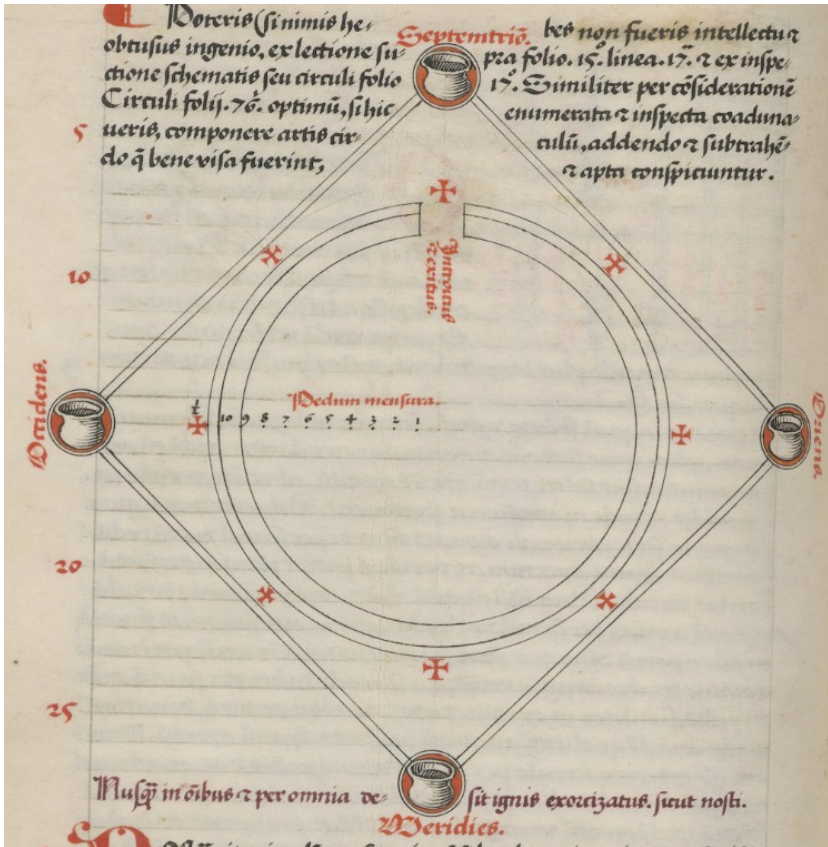 Poteris (si nimis he- bes non fueris intellectu ⁊
Septemtriō.
obtusus ingenio, ex lectione su- pra folio. 15°. linea. 17ª. ⁊ ex inspe-
ctione schematis seu circuli folio 17°. Similiter per cōsiderationē
Circuli folij. 76. optimū, si hic enumerata ⁊ inspecta coaduna-
5 ueris, componere artis cir- culū, addendo ⁊ subtrahē-
do q̄ bene visa fuerint, ⁊ apta conspiciuntur.
Introitus
⁊ exitus.
10
Occidens.
Pedum mensura.
½ 10 9 8 7 6 5 4 3 2 1
Oriens.
20
25
Nusq̄ in oībus ⁊ per omnia de- sit ignis exorcizatus. sicut nosti.
Meridies.